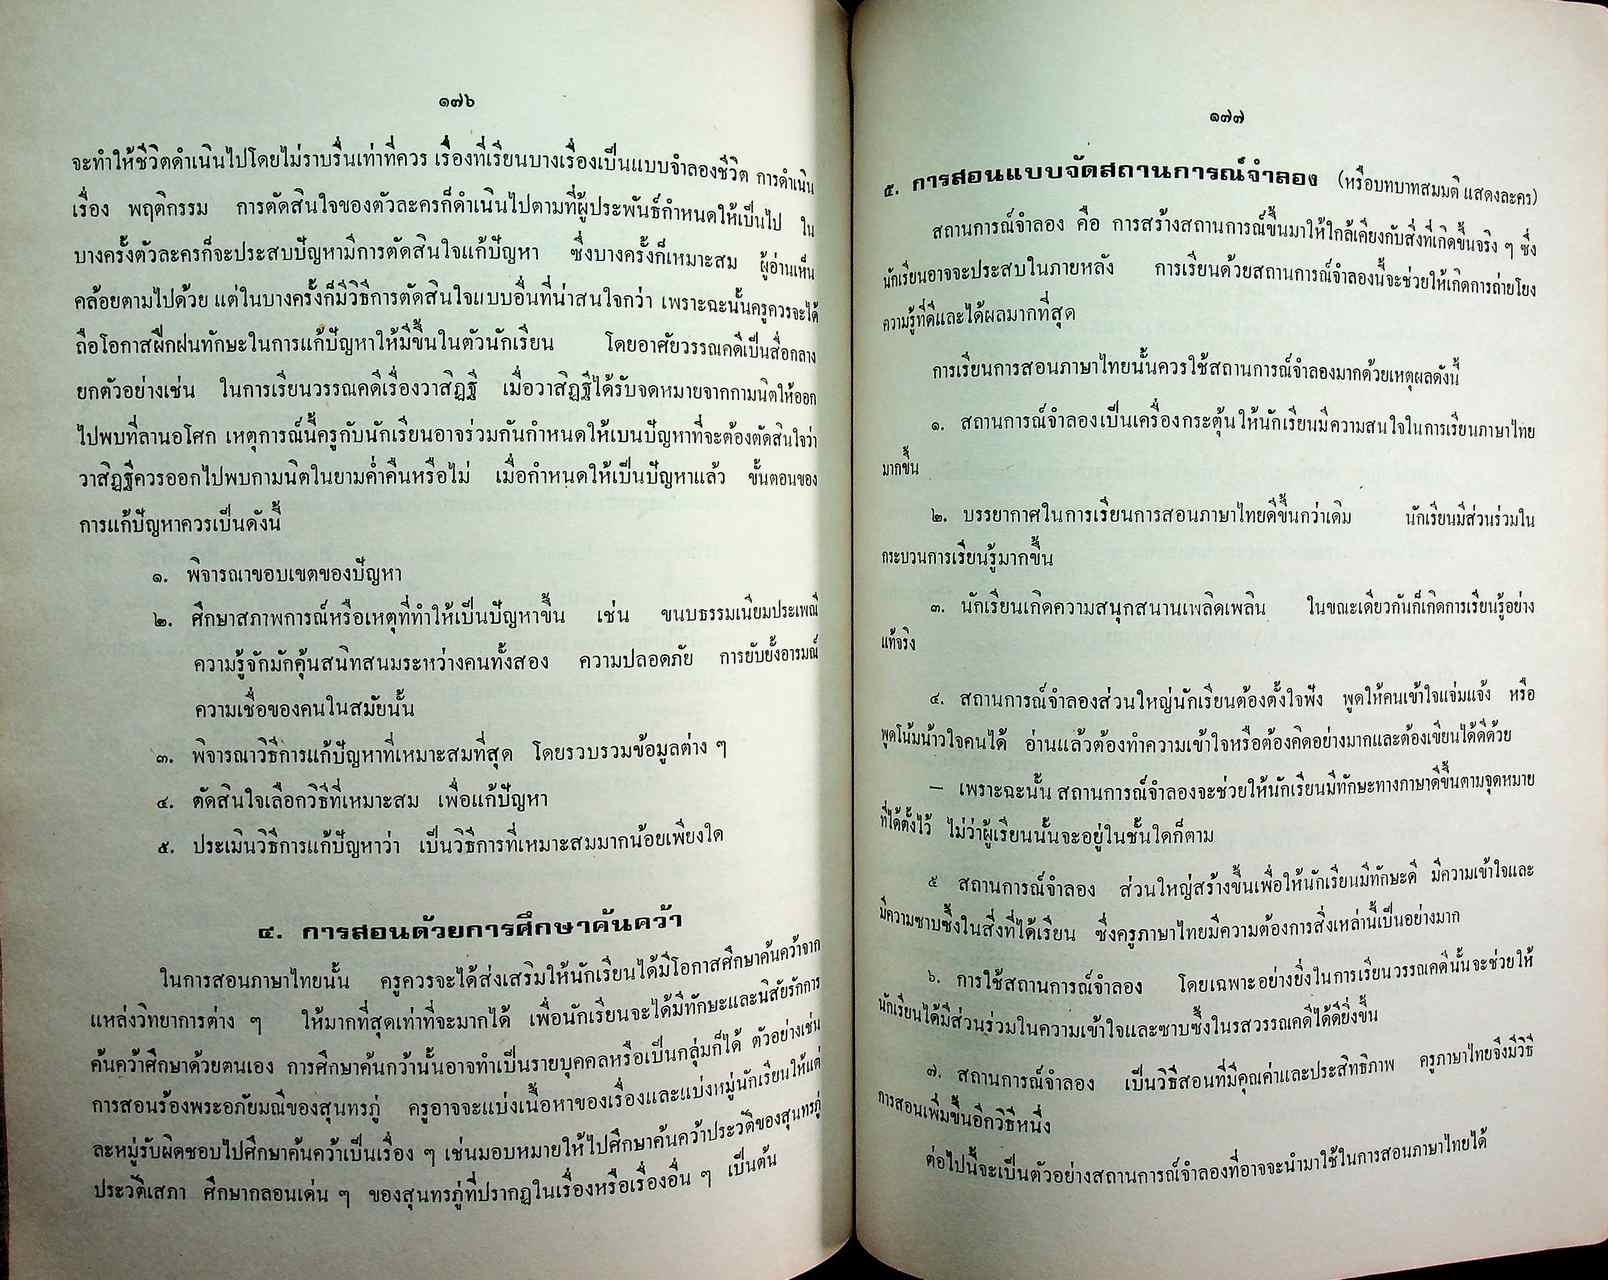 ๑๗๖
จะทำให้ชีวิตดำเนินไปโดยไม่ราบรื่นเท่าที่ควร เรื่องที่เรียนบางเรื่องเป็นแบบจำลองชีวิต การดำเนิน
เรื่อง พฤติกรรม การตัดสินใจของตัวละครก็ดำเนินไปตามที่ผู้ประพันธ์กำหนดให้เป็นไป ใน
บางครั้งตัวละครก็จะประสบปัญหามีการตัดสินใจแก้ปัญหา ซึ่งบางครั้งก็เหมาะสม ผู้อ่านเห็น
คล้อยตามไปด้วย แต่ในบางครั้งก็มีวิธีการตัดสินใจแบบอื่นที่น่าสนใจกว่า เพราะฉะนั้นครูควรจะได้
ถือโอกาสฝึกฝนทักษะในการแก้ปัญหาให้มีขึ้นในตัวนักเรียน โดยอาศัยวรรณคดีเป็นสื่อกลาง
ยกตัวอย่างเช่น ในการเรียนวรรณคดีเรื่องวาสิฏฐี เมื่อวาสิฏฐีได้รับจดหมายจากกามนิตให้ออก
ไปพบที่ลานอโศก เหตุการณ์นี้ครูกับนักเรียนอาจร่วมกันกำหนดให้เบนปัญหาที่จะต้องตัดสินใจว่า
วาสิฏฐีควรออกไปพบกามนิตในยามค่ำคืนหรือไม่ เมื่อกำหนดให้เป็นปัญหาแล้ว ขั้นตอนของ
การแก้ปัญหาควรเป็นดังนี้
๑. พิจารณาขอบเขตของปัญหา
๒. ศึกษาสภาพการณ์หรือเหตุที่ทำให้เป็นปัญหาขึ้น เช่น ขนบธรรมเนียมประเพณี
ความรู้จักมักคุ้นสนิทสนมระหว่างคนทั้งสอง ความปลอดภัย การยับยั้งอารมณ์
ความเชื่อของคนในสมัยนั้น
๓. พิจารณาวิธีการแก้ปัญหาที่เหมาะสมที่สุด โดยรวบรวมข้อมูลต่าง ๆ
๔. ตัดสินใจเลือกวิธีที่เหมาะสม เพื่อแก้ปัญหา
๕. ประเมินวิธีการแก้ปัญหาว่า เป็นวิธีการที่เหมาะสมมากน้อยเพียงใด
๔. การสอนด้วยการศึกษาค้นคว้า
ในการสอนภาษาไทยนั้น ครูควรจะได้ส่งเสริมให้นักเรียนได้มีโอกาสศึกษาค้นคว้าจาก
แหล่งวิทยาการต่าง ๆ ให้มากที่สุดเท่าที่จะมากได้ เพื่อนักเรียนจะได้มีทักษะและนิสัยรักการ
ค้นคว้าศึกษาด้วยตนเอง การศึกษาค้นกว้านั้นอาจทำเป็นรายบุคคลหรือเป็นกลุ่มก็ได้ ตัวอย่างเช่น
การสอนร้องพระอภัยมณีของสุนทรภู่ ครูอาจจะแบ่งเนื้อหาของเรื่องและแบ่งหมู่นักเรียนให้แต่
ละหมู่รับผิดชอบไปศึกษาค้นคว้าเป็นเรื่อง ๆ เช่นมอบหมายให้ไปศึกษาค้นคว้าประวัติของสุนทรภู่
ประวัติเสภา ศึกษากลอนเด่น ๆ ของสุนทรภู่ที่ปรากฏในเรื่องหรือเรื่องอื่น ๆ เป็นต้น
๑๗๗
๕. การสอนแบบจัดสถานการณ์จำลอง (หรือบทบาทสมมติ แสดงละคร)
สถานการณ์จำลอง คือ การสร้างสถานการณ์ขึ้นมาให้ใกล้เคียงกับสิ่งที่เกิดขึ้นจริง ๆ ซึ่ง
นักเรียนอาจจะประสบในภายหลัง การเรียนด้วยสถานการณ์จำลองนี้จะช่วยให้เกิดการถ่ายโยง
ความรู้ที่ดีและได้ผลมากที่สุด
การเรียนการสอนภาษาไทยนั้นควรใช้สถานการณ์จำลองมากด้วยเหตุผลดังนี้
๑. สถานการณ์จำลองเป็นเครื่องกระตุ้นให้นักเรียนมีความสนใจในการเรียนภาษาไทย
มากขึ้น
๒. บรรยากาศในการเรียนการสอนภาษาไทยดีขึ้นกว่าเดิม นักเรียนมีส่วนร่วมใน
กระบวนการเรียนรู้มากขึ้น
๓. นักเรียนเกิดความสนุกสนานเพลิดเพลิน ในขณะเดียวกันก็เกิดการเรียนรู้อย่าง
แท้จริง
๔. สถานการณ์จำลองส่วนใหญ่นักเรียนต้องตั้งใจฟัง พูดให้คนเข้าใจแจ่มแจ้ง หรือ
พูดโน้มน้าวใจคนได้ อ่านแล้วต้องทำความเข้าใจหรือต้องคิดอย่างมากและต้องเขียนได้ดีด้วย
– เพราะฉะนั้น สถานการณ์จำลองจะช่วยให้นักเรียนมีทักษะทางภาษาดีขึ้นตามจุดหมาย
ที่ได้ตั้งไว้ ไม่ว่าผู้เรียนนั้นจะอยู่ในชั้นใดก็ตาม
๕ สถานการณ์จำลอง ส่วนใหญ่สร้างขึ้นเพื่อให้นักเรียนมีทักษะดี มีความเข้าใจและ
มีความซาบซึ้งในสิ่งที่ได้เรียน ซึ่งครูภาษาไทยมีความต้องการสิ่งเหล่านี้เป็นอย่างมาก
๖. การใช้สถานการณ์จำลอง โดยเฉพาะอย่างยิ่งในการเรียนวรรณคดีนั้นจะช่วยให้
นักเรียนได้มีส่วนร่วมในความเข้าใจและซาบซึ้งในรสวรรณคดีได้ดียิ่งขึ้น
๗. สถานการณ์จำลอง เป็นวิธีสอนที่มีคุณค่าและประสิทธิภาพ ครูภาษาไทยจึงมีวิธี
การสอนเพิ่มขึ้นอีกวิธีหนึ่ง
ต่อไปนี้จะเป็นตัวอย่างสถานการณ์จำลองที่อาจจะนำมาใช้ในการสอนภาษาไทยได้